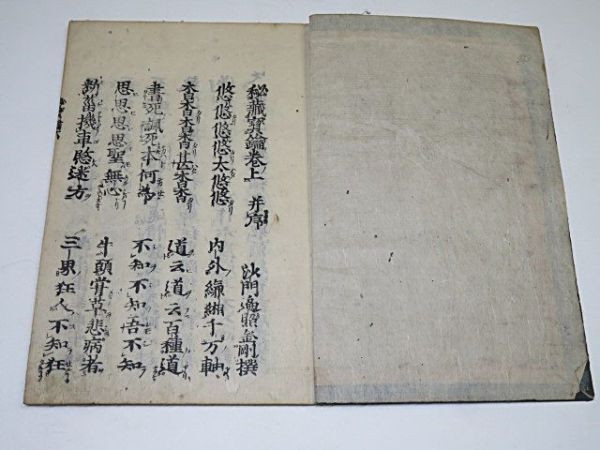 秘藏寳鑰卷上 并序 沙門遍照金剛撰
悠悠悠悠太悠悠 内外縑緗千万軸
杳杳杳杳甚杳杳 道云道云百種道
書死諷死本何為 不知不知吾不知
思思思思聖無心 牛頭甞草悲病者
断菑機車愍迷方 三界狂人不知狂